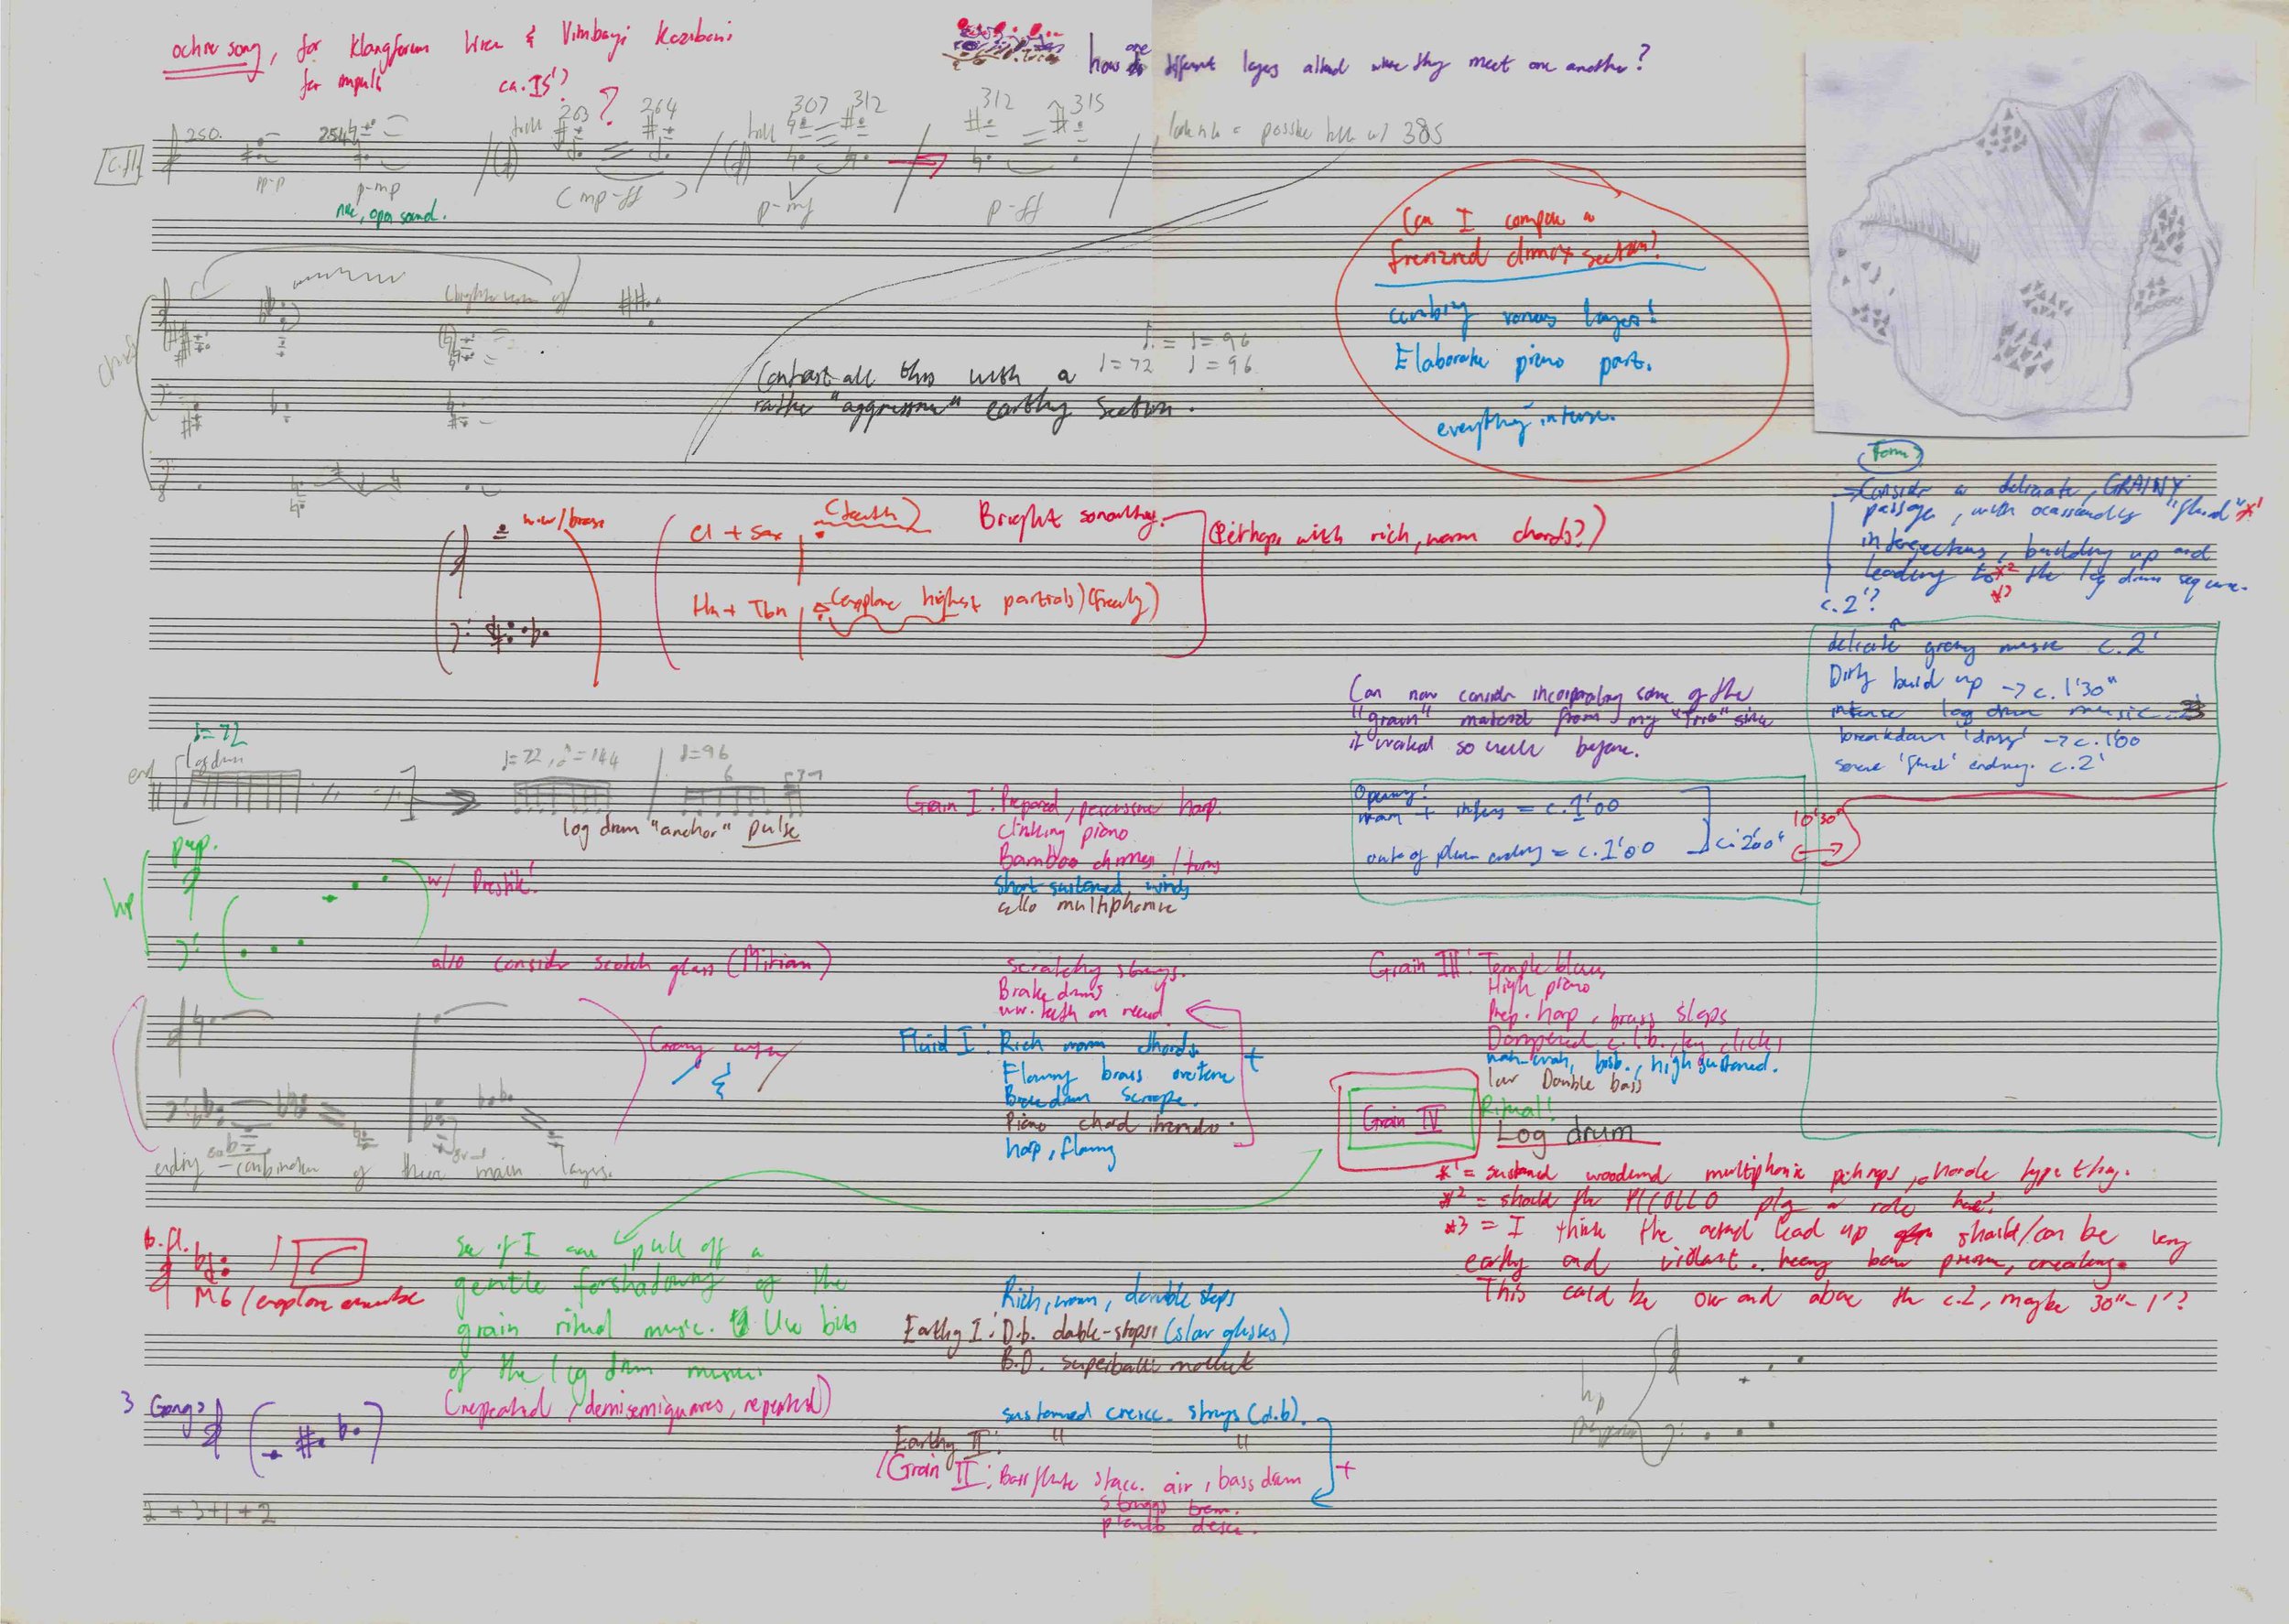 ochre song, for Klangforum Wien & Vimbayi Kaziboni
for impuls ca. 15'?
how are different layers altered when they meet one another?
250. 254 trill 263 ? 264 trill 307 312 312 315
possible trill w/ 385
c.fl.
pp-p p-mp (mp-ff) p-mf p-ff
nat., open sound.
Can I compose a
frenzied climax section?
combining various layers!
Elaborate piano part.
everything intense.
♩. = ♩ = 96
♩=72 ♩=96
Contrast all this with a
rather "aggressive" earthy section.
Form
→ Consider a delicate, GRAINY
passage, with ocassionally "fluid" *1
interjections, building up and
leading to *2 the log drum sequence.
*3
c.2'?
w.w/brass
Cl + Sax (teeth) Bright sonority. (Perhaps with rich, warm chords?)
Hn + Tbn (explore highest partials) (freely)
delicate grainy music c.2'
Dirty build up → c.1'30"
intense log drum music
breakdown → c.1'00
'fluid' ending. c.2'
Can now consider incorporating some of the
"grain" material from my "Trio" since
it worked so well before.
♩=72
log drum
♩=72, ♪=144 ♩=96
6
log drum "anchor" pulse
Opening:
= c.1'00
out of phase ending = c.1'00 c.2'00"
10'30"
Grain I: Prepared, percussive harp.
clinking piano
Bamboo chimes /
short sustained, winds
cello multiphonic
scratchy strings.
Brake drums
w.w. teeth on reed.
prep.
hp
w/ Prestik!
also consider scotch glass (Mirian)
Fluid I: Rich warm chords.
Flowing brass overtone
Brake drum scrape.
Piano chord tremolo.
harp, flowing
+
Grain III: Temple blocks
High piano
Prep. harp, brass slaps
Dampened c.l.b., key clicks
wah-wah, high sustained.
low Double bass
Grain IV Ritual!
Log drum
ending – combination of three main layers.
*1 = sustained woodwind multiphonic perhaps, a chorale type thing.
*2 = should the PICCOLLO play a role here?
*3 = I think the actual lead up should/can be very
earthy and violent.. heavy bow pressure, creaking.
This could be over and above the c.2, maybe 30"- 1'?
b.fl.
M6 /
See if I can pull off a
gentle forshadowing of the
grain ritual music. Use bits
of the log drum music.
(repeated, demisemiquavers, repeated)
Rich, warm, double stops
Earthy I: D.b. double-stops (slow glisses)
B.D. superball mallet
3 Gongs
sustained cresc. strings (d.b).
Earthy II: " "
/Grain II: Bass flute stacc. air, bass drum
strings
+
hp
2 + 3 + 1 + 2